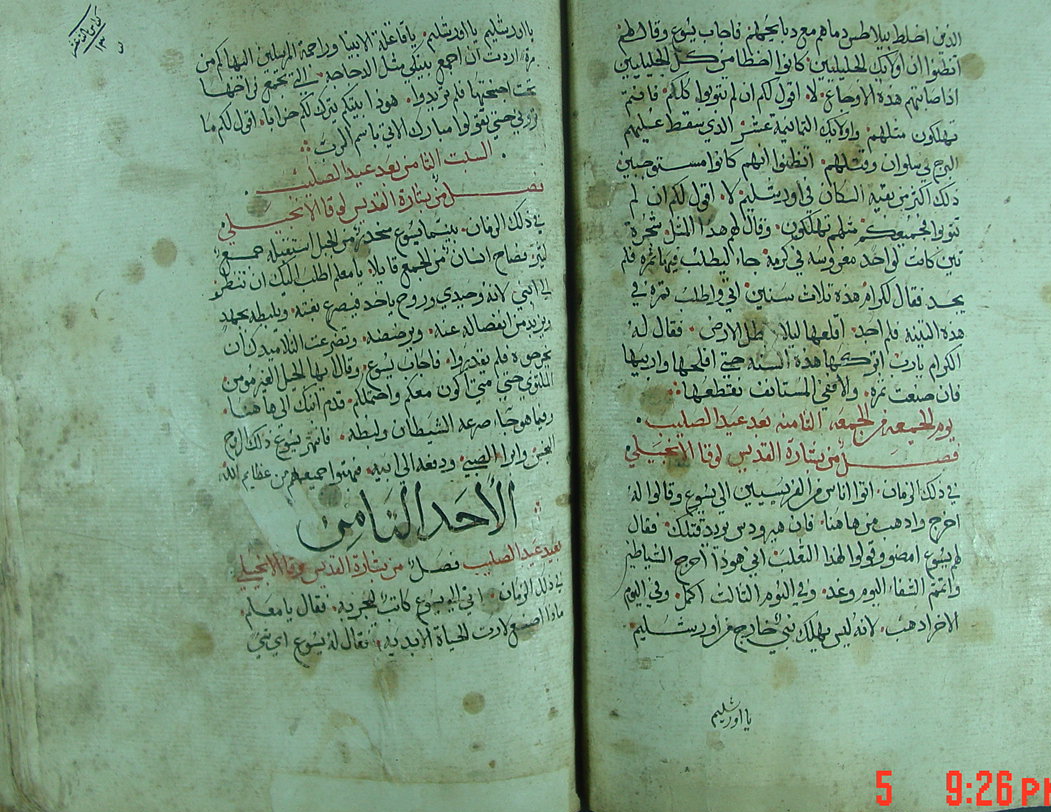 الذين اخلط بيلاطس دماهم مع دبايحهم فاجاب يسوع وقال لهم
اتظنوا ان اوليك الجليليين كانوا اخطا من كل الجليليين
اذ اصابتهم هذه الاوجاع لا اقول لكم ان لم تتوبوا كلكم فانتم
تهلكون مثلهم واولايك الثمانية عشر الذي سقط عليهم
البرج في سلوان وقتلهم اتظنوا انهم كانوا مستوجبين
ذلك اكثر من بقيه السكان في اورشليم لا اقول لكم ان لم
تتوبوا جميعكم مثلهم تهلكون وقال لهم هذا المثل شجرة
تين كانت لواحد مغروسه في كرمة جاء ليطلب فيها ثمرة فلم
يجد فقال للكرام هذه ثلاث سنين اتي واطلب ثمرة في
هذه التينة فلم اجد اقلعها ليلا تبطل الارض فقال له
الكرام يارب اتركها هذه السنه حتى افلحها واربيها
فان صنعت ثمرة والا ففي المستانف تقطعها
يوم الجمعه من الجمعه الثامنه بعد عيد الصليب
فصل من بشارة القديس لوقا الانجيلي
في ذلك الزمان اتوا اناس من الفريسيين الى يسوع وقالوا له
اخرج واذهب من هاهنا فان هيرودس يريد قتلك فقال
لهم يسوع امضوا وقولوا لهذا الثعلب اني هوذا اخرج الشياطين
واتمم الشفاء اليوم وغد وفي اليوم الثالث اكمل وفي اليوم
الاخر اذهب لانه ليس يهلك نبي خارج من اورشليم
يا اورشليم
يا اورشليم يا اورشليم يا قاتلة الانبيا وراجمة المرسلين اليها كم من
مرة اردت ان اجمع بنيكي مثل الدجاجه التي تجمع فراخها
تحت اجنحتها فلم تريدوا هوذا بيتكم يترك لكم خرابا اقول لكم ما
تروني حتى تقولوا مبارك الاتي باسم الرب
السبت الثامن بعد عيد الصليب
فصل من بشارة القديس لوقا الانجيلي
في ذلك الزمان بينما يسوع منحدر من الجبل استقبله جمع
كثير فصاح انسان من الجمع قايلا يا معلم اطلب اليك ان تنظر
الى ابني لانه وحيدي وروح ياخذه فيصرخ بغتة ويلبطه بجهد
يزبد من انفصاله عنه ويرضضه وتضرعت لتلاميذك ان
يخرجوه فلم يقدروا فاجاب يسوع وقال ايها الجيل الغير مومن
الملتوي حتى متى اكون معكم واحتملكم قدم ابنك الى هاهنا
وفيما هو جاء صرعه الشيطان ولبطه فانتهر يسوع ذلك الروح
النجس وابرا الصبي ودفعه الى ابيه فبهتوا جميعهم من عظايم الله
الاحد الثامن
بعد عيد الصليب فصل من بشارة القديس لوقا الانجيلي
في ذلك الزمان اتى الى يسوع كاتب ليجربه فقال يا معلم
ماذا اصنع لارث الحياة الابديه فقال له يسوع اي شي
5 9:26 PM